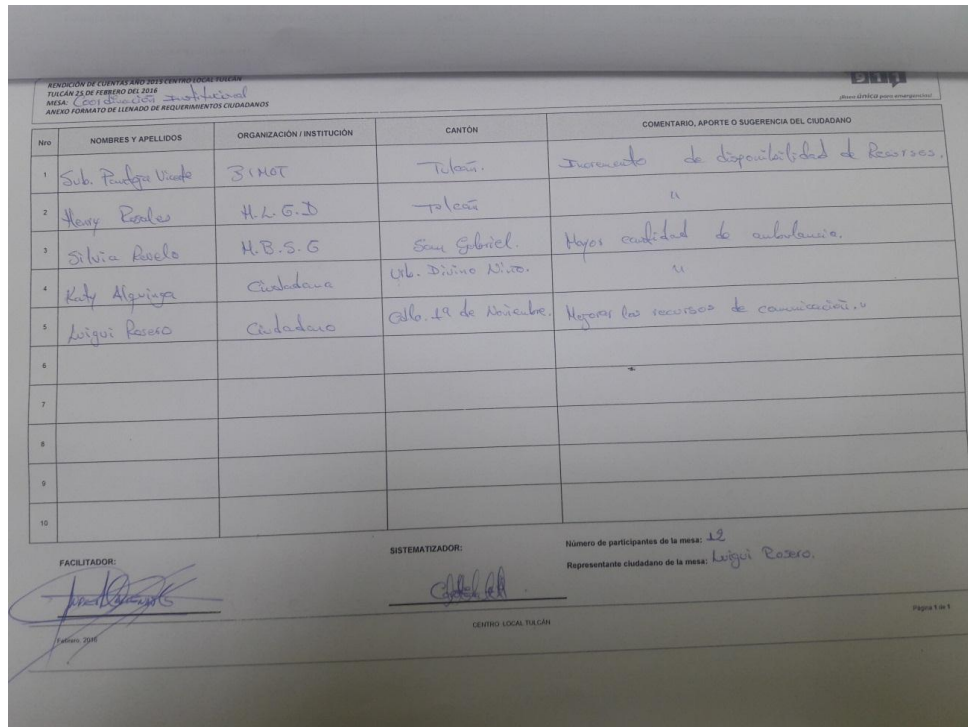 RENDICIÓN DE CUENTAS AÑO 2015 CENTRO LOCAL TULCÁN
TULCÁN 25 DE FEBRERO DEL 2016
MESA: Coordinación Institucional
ANEXO FORMATO DE LLENADO DE REQUERIMIENTOS CIUDADANOS
911
única para emergencias!
Nro NOMBRES Y APELLIDOS ORGANIZACIÓN / INSTITUCIÓN CANTÓN COMENTARIO, APORTE O SUGERENCIA DEL CIUDADANO
1 Sub. Vicente Tulcán. Incremento de disponibilidad de Recursos.
2 Henry Rosales H.L.G.D Tulcán "
3 Silvia H.B.S.G San Gabriel. Mayor cantidad de ambulancia.
4 Katy Alquinga Ciudadana Urb. Divino Niño. "
5 Luigui Rosero Ciudadano Cdla. 19 de Noviembre. Mejorar los recursos de comunicación."
6
7
8
9
10
FACILITADOR:
SISTEMATIZADOR:
Número de participantes de la mesa: 12
Representante ciudadano de la mesa: Luigui Rosero.
Febrero, 2016
CENTRO LOCAL TULCÁN
Página 1 de 1